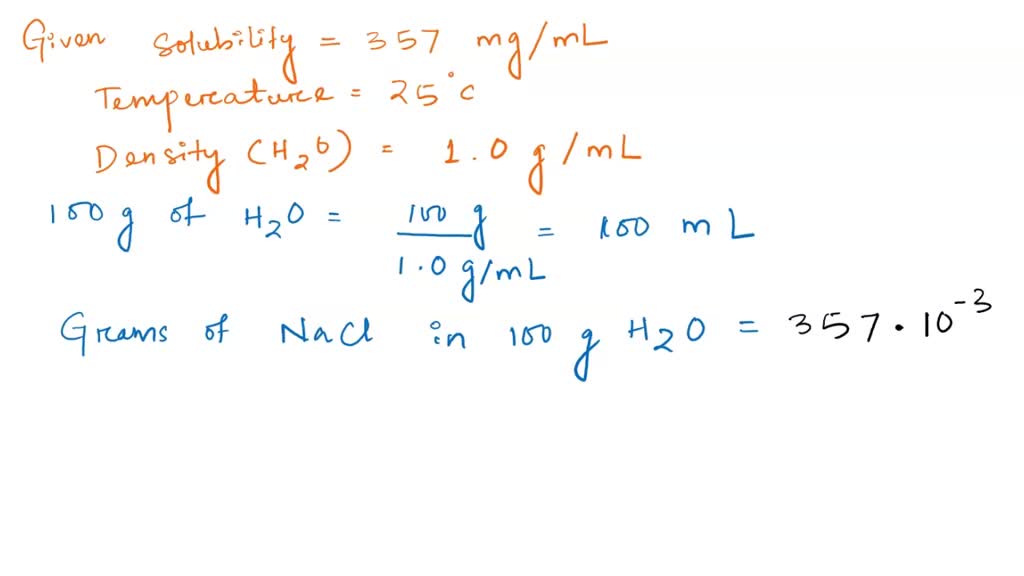 Given Solubility = 357 mg/mL
Temperature = 25°C
Density (H₂O) = 1.0 g/mL
100 g of H₂O = 100 g / 1.0 g/mL = 100 mL
Grams of NaCl in 100 g H₂O = 357 · 10⁻³